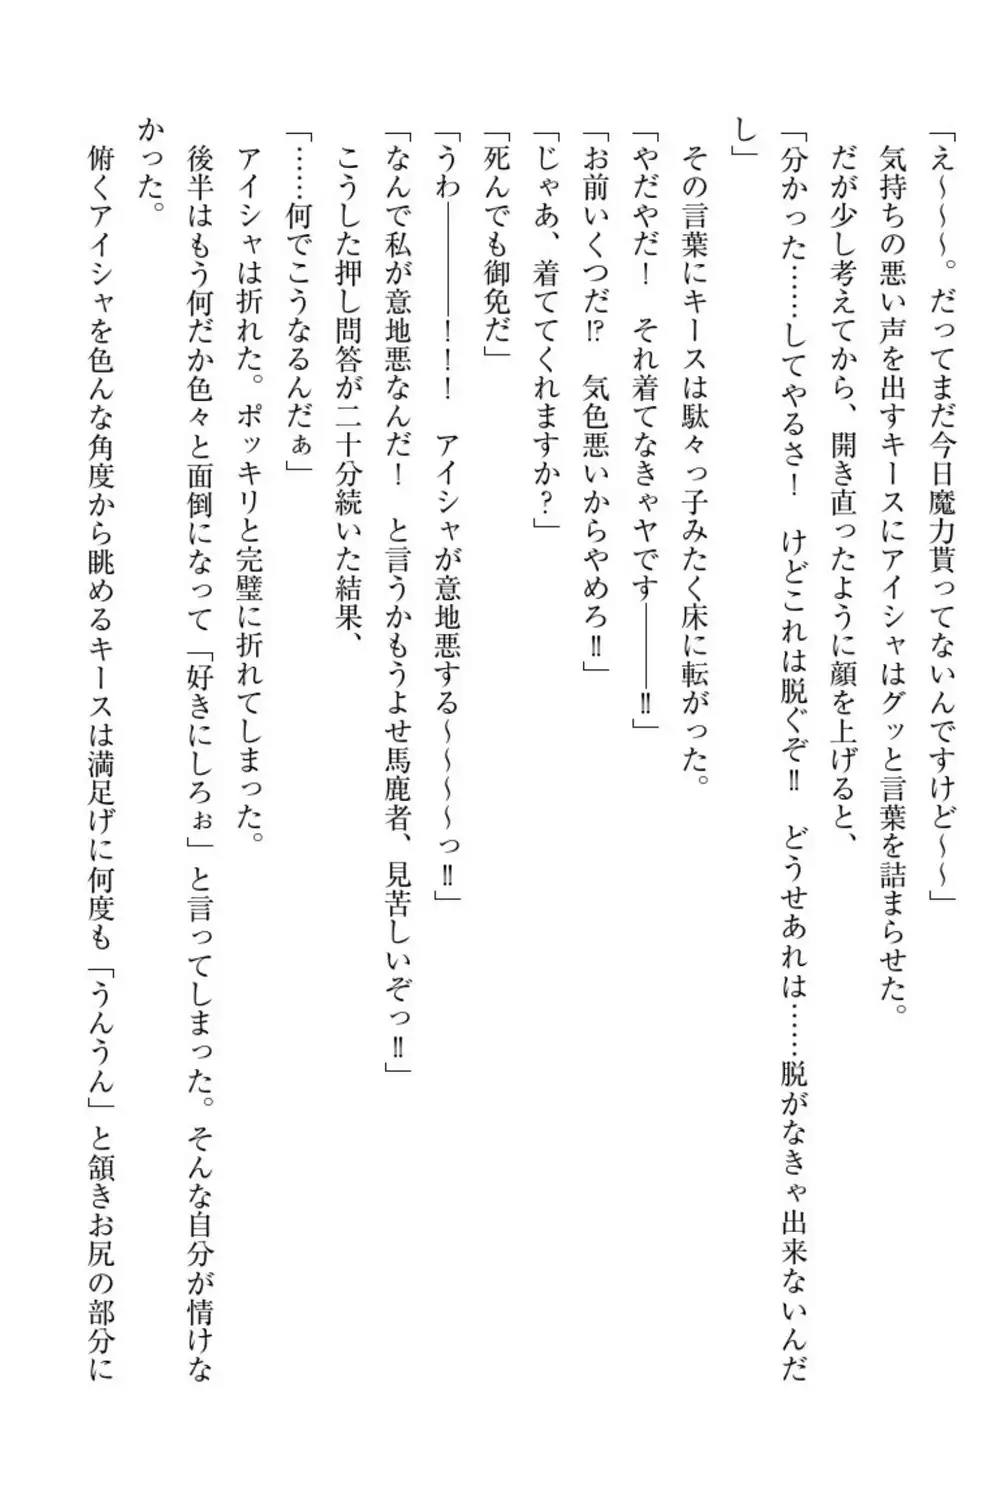 「え～～～。だってまだ今日魔力貰ってないんですけど～～」
　気持ちの悪い声を出すキースにアイシャはグッと言葉を詰まらせた。
　だが少し考えてから、開き直ったように顔を上げると、
「分かった……してやるさ！　けどこれは脱ぐぞ‼　どうせあれは……脱がなきゃ出来ないんだ
し」
　その言葉にキースは駄々っ子みたく床に転がった。
「やだやだ！　それ着てなきゃヤです―――‼」
「お前いくつだ⁉　気色悪いからやめろ‼」
「じゃあ、着ててくれますか？」
「死んでも御免だ」
「うわ――――！！！　アイシャが意地悪する～～～～っ‼」
「なんで私が意地悪なんだ！　と言うかもうよせ馬鹿者、見苦しいぞっ‼」
　こうした押し問答が二十分続いた結果、
「……何でこうなるんだぁ」
　アイシャは折れた。ポッキリと完璧に折れてしまった。
　後半はもう何だか色々と面倒になって「好きにしろぉ」と言ってしまった。そんな自分が情けな
かった。
　俯くアイシャを色んな角度から眺めるキースは満足げに何度も「うんうん」と頷きお尻の部分に